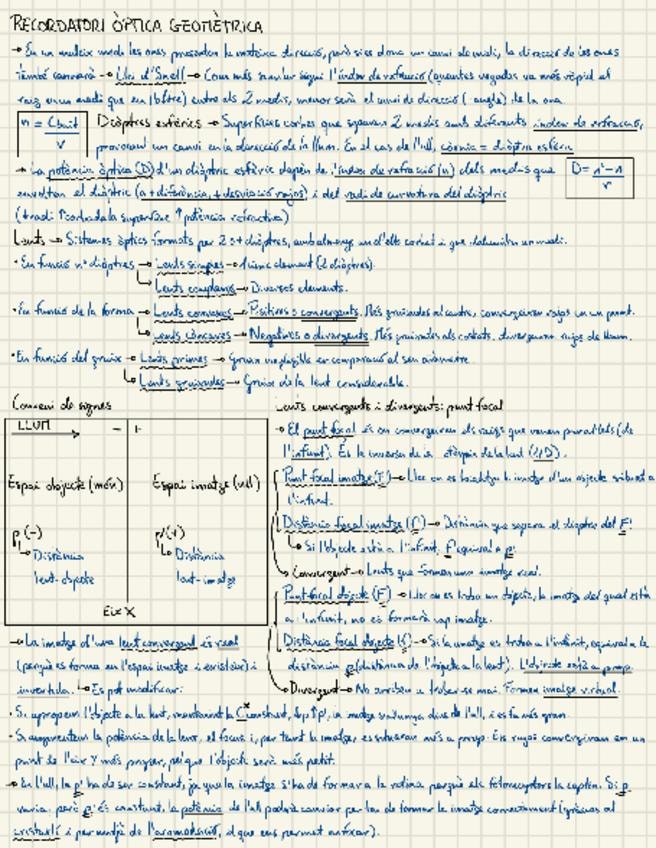 RECORDATORI ÒPTICA GEOMÈTRICA
→ En un mateix medi les ones presenten la mateixa direcció, però si es dona un canvi de medi, la direcció de les ones
també canviarà → Llei d'Snell → Com més similar sigui l'índex de refracció (quantes vegades va més ràpid el
raig en un medi que en l'altre) entre els 2 medis, menor serà el canvi de direcció (angle) de la ona.
n = Cbuit / v
Diòptres esfèrics → Superfícies corbes que separen 2 medis amb diferents índex de refracció,
provocant un canvi en la direcció de la llum. En el cas de l'ull, còrnia = diòptre esfèric
→ La potència òptica (D) d'un diòptre esfèric depèn de l'índex de refracció (n) dels medis que
D = n'-n / r
envolten el diòptre (a + diferència, + desviació rajos) i del radi de curvatura del diòptric
(+ radi ↑corbada la superfície ↑potència refractiva)
Lents → Sistemes òptics formats per 2 o + diòptres, amb almenys un d'ells corbat i que delimiten un medi.
· En funció nº diòptres → Lents simples → 1 únic element (2 diòptres)
→ Lents complexes → Diversos elements.
· En funció de la forma → Lents convexes → Positives o convergents. Més gruixudes al centre, convergeixen rajos en un punt.
→ Lents còncaves → Negatives o divergents. Més gruixudes als costats, divergeixen rajos de llum.
· En funció del gruix → Lents primes → Gruix negligible en comparació al seu diàmetre.
→ Lents gruixudes → Gruix de la lent considerable.
Conveni de signes
LLUM → - +
Espai objecte (món) Espai imatge (ull)
p (-) p' (+)
→ Distància → Distància
lent-objecte lent-imatge
Eix X
Lents convergents i divergents: punt focal
→ El punt focal és on convergeixen els raigs que venen paral·lels (de
l'infinit). És la inversa de la potència de la lent (1/D).
Punt focal imatge (F') → Lloc on es localitza la imatge d'un objecte situat a
l'infinit.
Distància focal imatge (f') → Distància que separa el diòptre del F'
→ Si l'objecte està a l'infinit, f' equival a p'
→ Convergent → Lents que formen una imatge real.
Punt focal objecte (F) → Lloc on es troba un objecte, la imatge del qual està
a l'infinit, no es formarà cap imatge.
Distància focal objecte (f) → Si la imatge es troba a l'infinit, equival a la
distància p (distància de l'objecte a la lent). L'objecte està a prop.
→ Divergent → No arriben a trobar-se mai. Formen imatge virtual.
→ La imatge d'una lent convergent és real
(perquè es forma en l'espai imatge i existeix) i
invertida. → Es pot modificar:
· Si apropem l'objecte a la lent, mantenint la Cˣ constant, ↓p ↑p', la imatge va lluny dins de l'ull, i es fa més gran.
· Si augmentem la potència de la lent, el focus i, per tant la imatge, es situaran més a prop. Els rajos convergiran en un
punt de l'eix X més proper, pel que l'objecte serà més petit.
→ En l'ull, la p' ha de ser constant, ja que la imatge s'ha de formar a la retina perquè els fotoreceptors la captin. Si p
varia però p' és constant, la potència de l'ull podrà canviar per tal de formar la imatge correctament (gràcies al
cristal·lí i per mitjà de l'acomodació, el que ens permet enfocar).